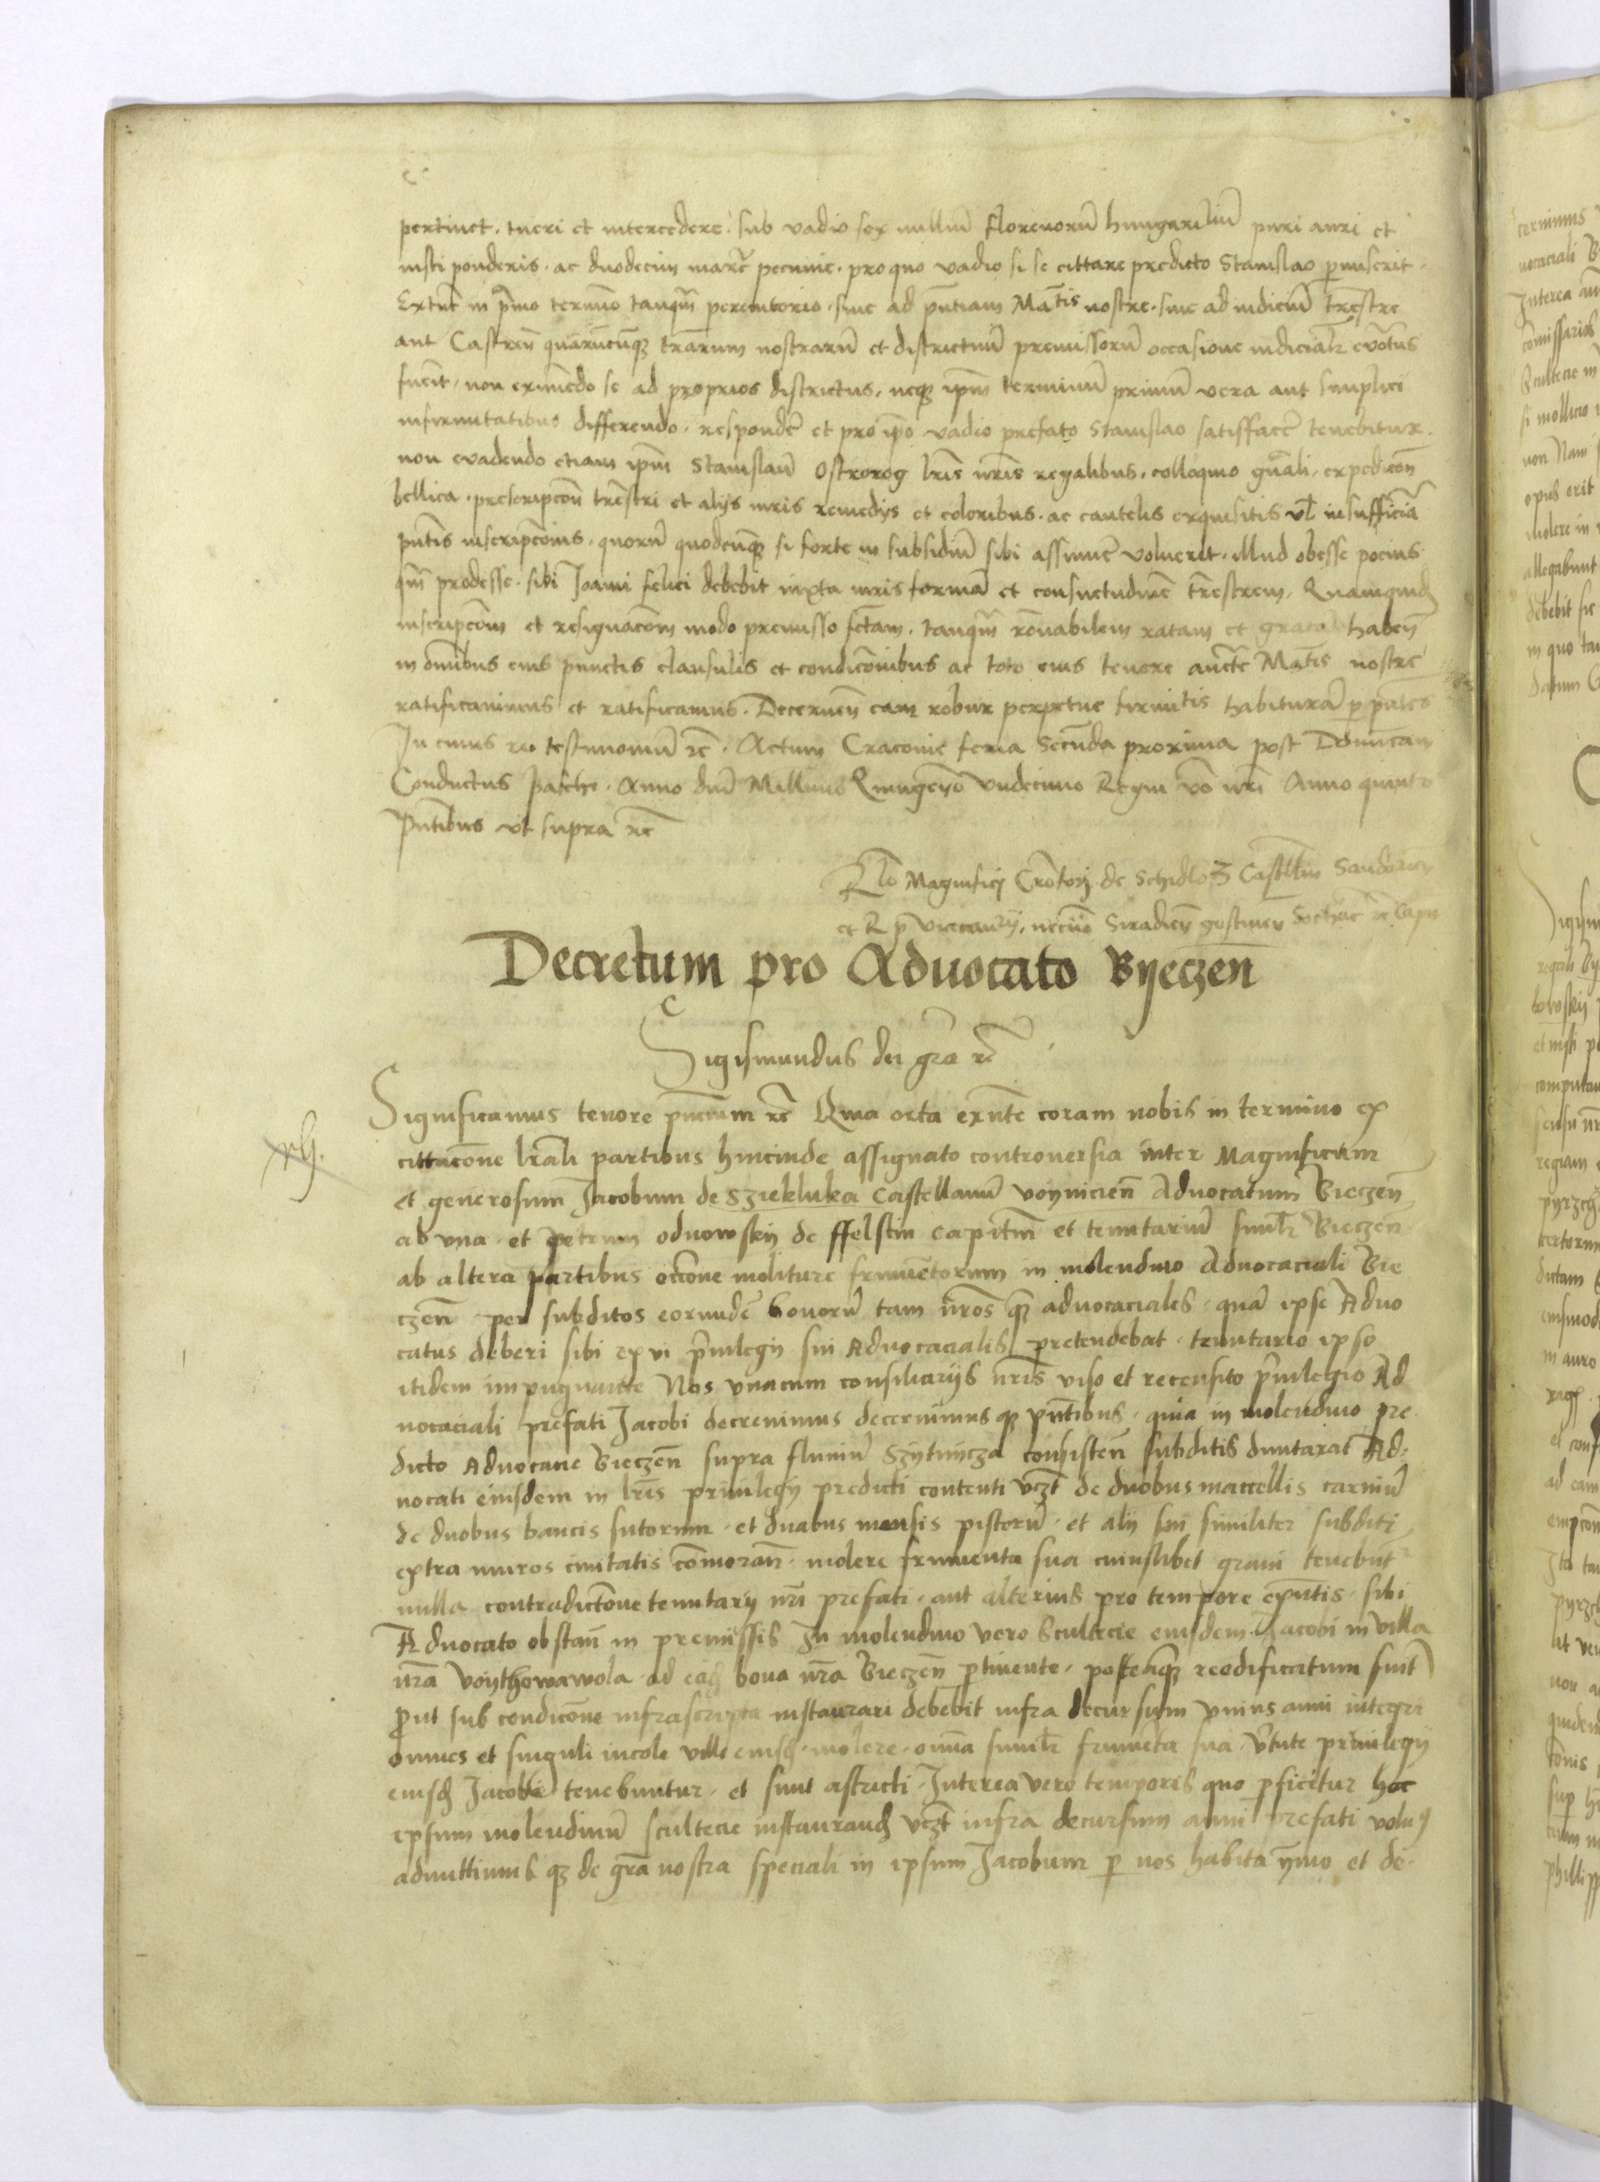 pertinet. tueri et intercedere. sub vadio sex milliū florenorū hungarᶜⁱliū puri auri et
iusti ponderis. ac duodecim marcͬ pecunie. pro quo vadio si se cittare predicto Stanislao pmiserit.
Extūc in pͥmo termīo tanqͣm peremtorio. siue ad pn̄tiam Māⁱˢ nostre. siue ad iudiciū trēstre
aut Castreñ quarūcūqꝫ trarum nostrarū et districtuū premissorū occasione iudicialr euōtus
fuerit. non eximēdo se ad proprios districtus. neqꝫ ip̄m terminū primū vera aut simplici
infirmitatibus differendo. respondēʳ et pro ip̄o vadio prefato Stanislao satisfacēʳ tenebitur.
non euadendo etiam ip̄m Stanislaū Ostrorog lrīs nrīs regalibus. colloquio gn̄ali. expedicōn
bellica. prescripcōn trēstri et alijs iuris remedijs et coloribus. ac cautelis exquisitis vl̄ insufficiā
pn̄tis inscripcōnis. quorū quodcūqꝫ si forte in subsidiū sibi assumēʳ voluerit. illud obesse pocius
qͣm prodesse. sibi Joanni felici debebit iuxta iuris formā et consuetudinē trēstrem. Quamquidꝫ
inscripcōm et resignacōm modo premisso fctam. tanqͣm rōnabilem ratam et gratā habeñ
in om̄ibus eius punctis clausulis et condicōnibus ac toto eius tenore auctē Mātis nostre
ratificauimus et ratificamus. Decerneñ eam robur perpetue firmitⁱˢ habiturā p pn̄tes
In cuius rei testimoniū rc̄. Actum Cracouie feria Secūda proxima post Dominicam
Conductus Pasche. Anno dnī Millimo Quingenᵐᵒ Vndecimo Regni vō nrī Anno quinto
Pn̄tibus vt supra rc̄
Rlō Magnifici Crōtorij de Schidloꝫ Castellani Sandomirieñ
et R p vicecanͬij. necnō Siradieñ gostineñ Sochac̄ rc̄ Capⁿⁱ
Decretum pro Aduocato Byeczen̄
Sigismundus dei grā rc̄
Significamus tenore pn̄cium rc̄ Quia orta exn̄te coram nobis in termino ex
cittacōne lrāli partibus hincinde assignato controuersia inter Magnificum
et generosum Jacobum de Sziekluka Castellanū voynicieñ Aduocatum Bieczeñ
ab vna. et Petrum odnowskij de ffelstin Capitm̄ et tenutariū simil̄r Bieczeñ
ab altera partibus occōne moliture frumētorum in molendino Aduocaciali Bie
czen̄ per subditos eorundē bonorū tam nr̄os qꝫ aduocaciales. quā ipse Aduo
catus deberi sibi ex vi pͥuilegij sui Aduocacialis pretendebat. tenutario ipso
itidem impugnante Nos vnacum consiliarijs nrīs viso et recensito pͥuilegio Ad
uocaciali prefati Jacobi decreuimus decernimus qꝫ pn̄tibus. quia in molendino pre
dicto Aduocacie Bieczeñ supra fluuiū Szytniicza consisteñ subditi duntaxat Ad.
uocati eiusdem in lrīs priuilegij predicti contenti vcꝫt de duobus maccellis carniū
de duobus bancis sutorum. et duabus mensis pistorū. et alij sui similiter subditi
extra muros ciuitatis cōmorañ. molere frumenta sua cuiuslibet grani tenebūt
nulla contradictōne tenutarij nrī prefati. aut alterius pro tempore exn̄tis. sibi
Aduocato obstañ in premissis In molendino vero Scultecie eiusdem Jacobi in villa
nrā voythowawola. ad eadꝫ bona nrā Bieczeñ ptinente. posteaqꝫ reedificatum fuit
pͦut sub condicōne infrascripta instaurari debebit infra decursum vnius anni integri
omnes et singuli incole ville eiusdꝫ. molere. om̄a simil̄r frumēta sua vͬtute priuilegij
eiusdꝫ Jacobi tenebuntur. et sunt astricti. Interea vero temporis quo pficetur hoc
ipsum molendinū scultecie instaurandꝫ vcꝫt infra decursum anni prefati volumꝰ
admittimus qꝫ de grā nostra speciali in ipsum Jacobum p nos habita ymo et de.